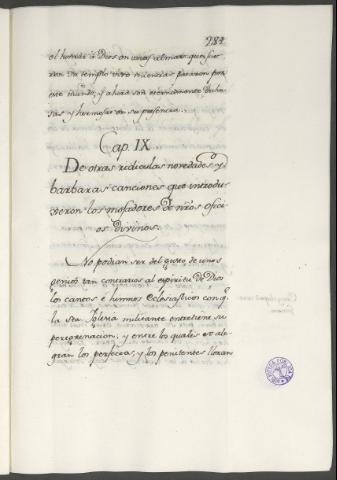 284
el hombre à Dios en unas almas, que fue
ron su templo vivo mientras pasaron por
este mundo; y ahora son eternamente dicho
sas y hermosas en su presencia.
Cap. IX
De otras ridiculas novedades, y
barbaras canciones que introdu
xeron los mofadores de nrõs ofici
os divinos.
No podian ser del gusto de unos
genios tan contrarios al espiritu de Dios
los canticos é himnos Eclesiasticos con q̃
la sta Iglesia militante entretiene su
peregrinacion, y entre los quales se ale
gran los perfectos, y los penitentes lloran